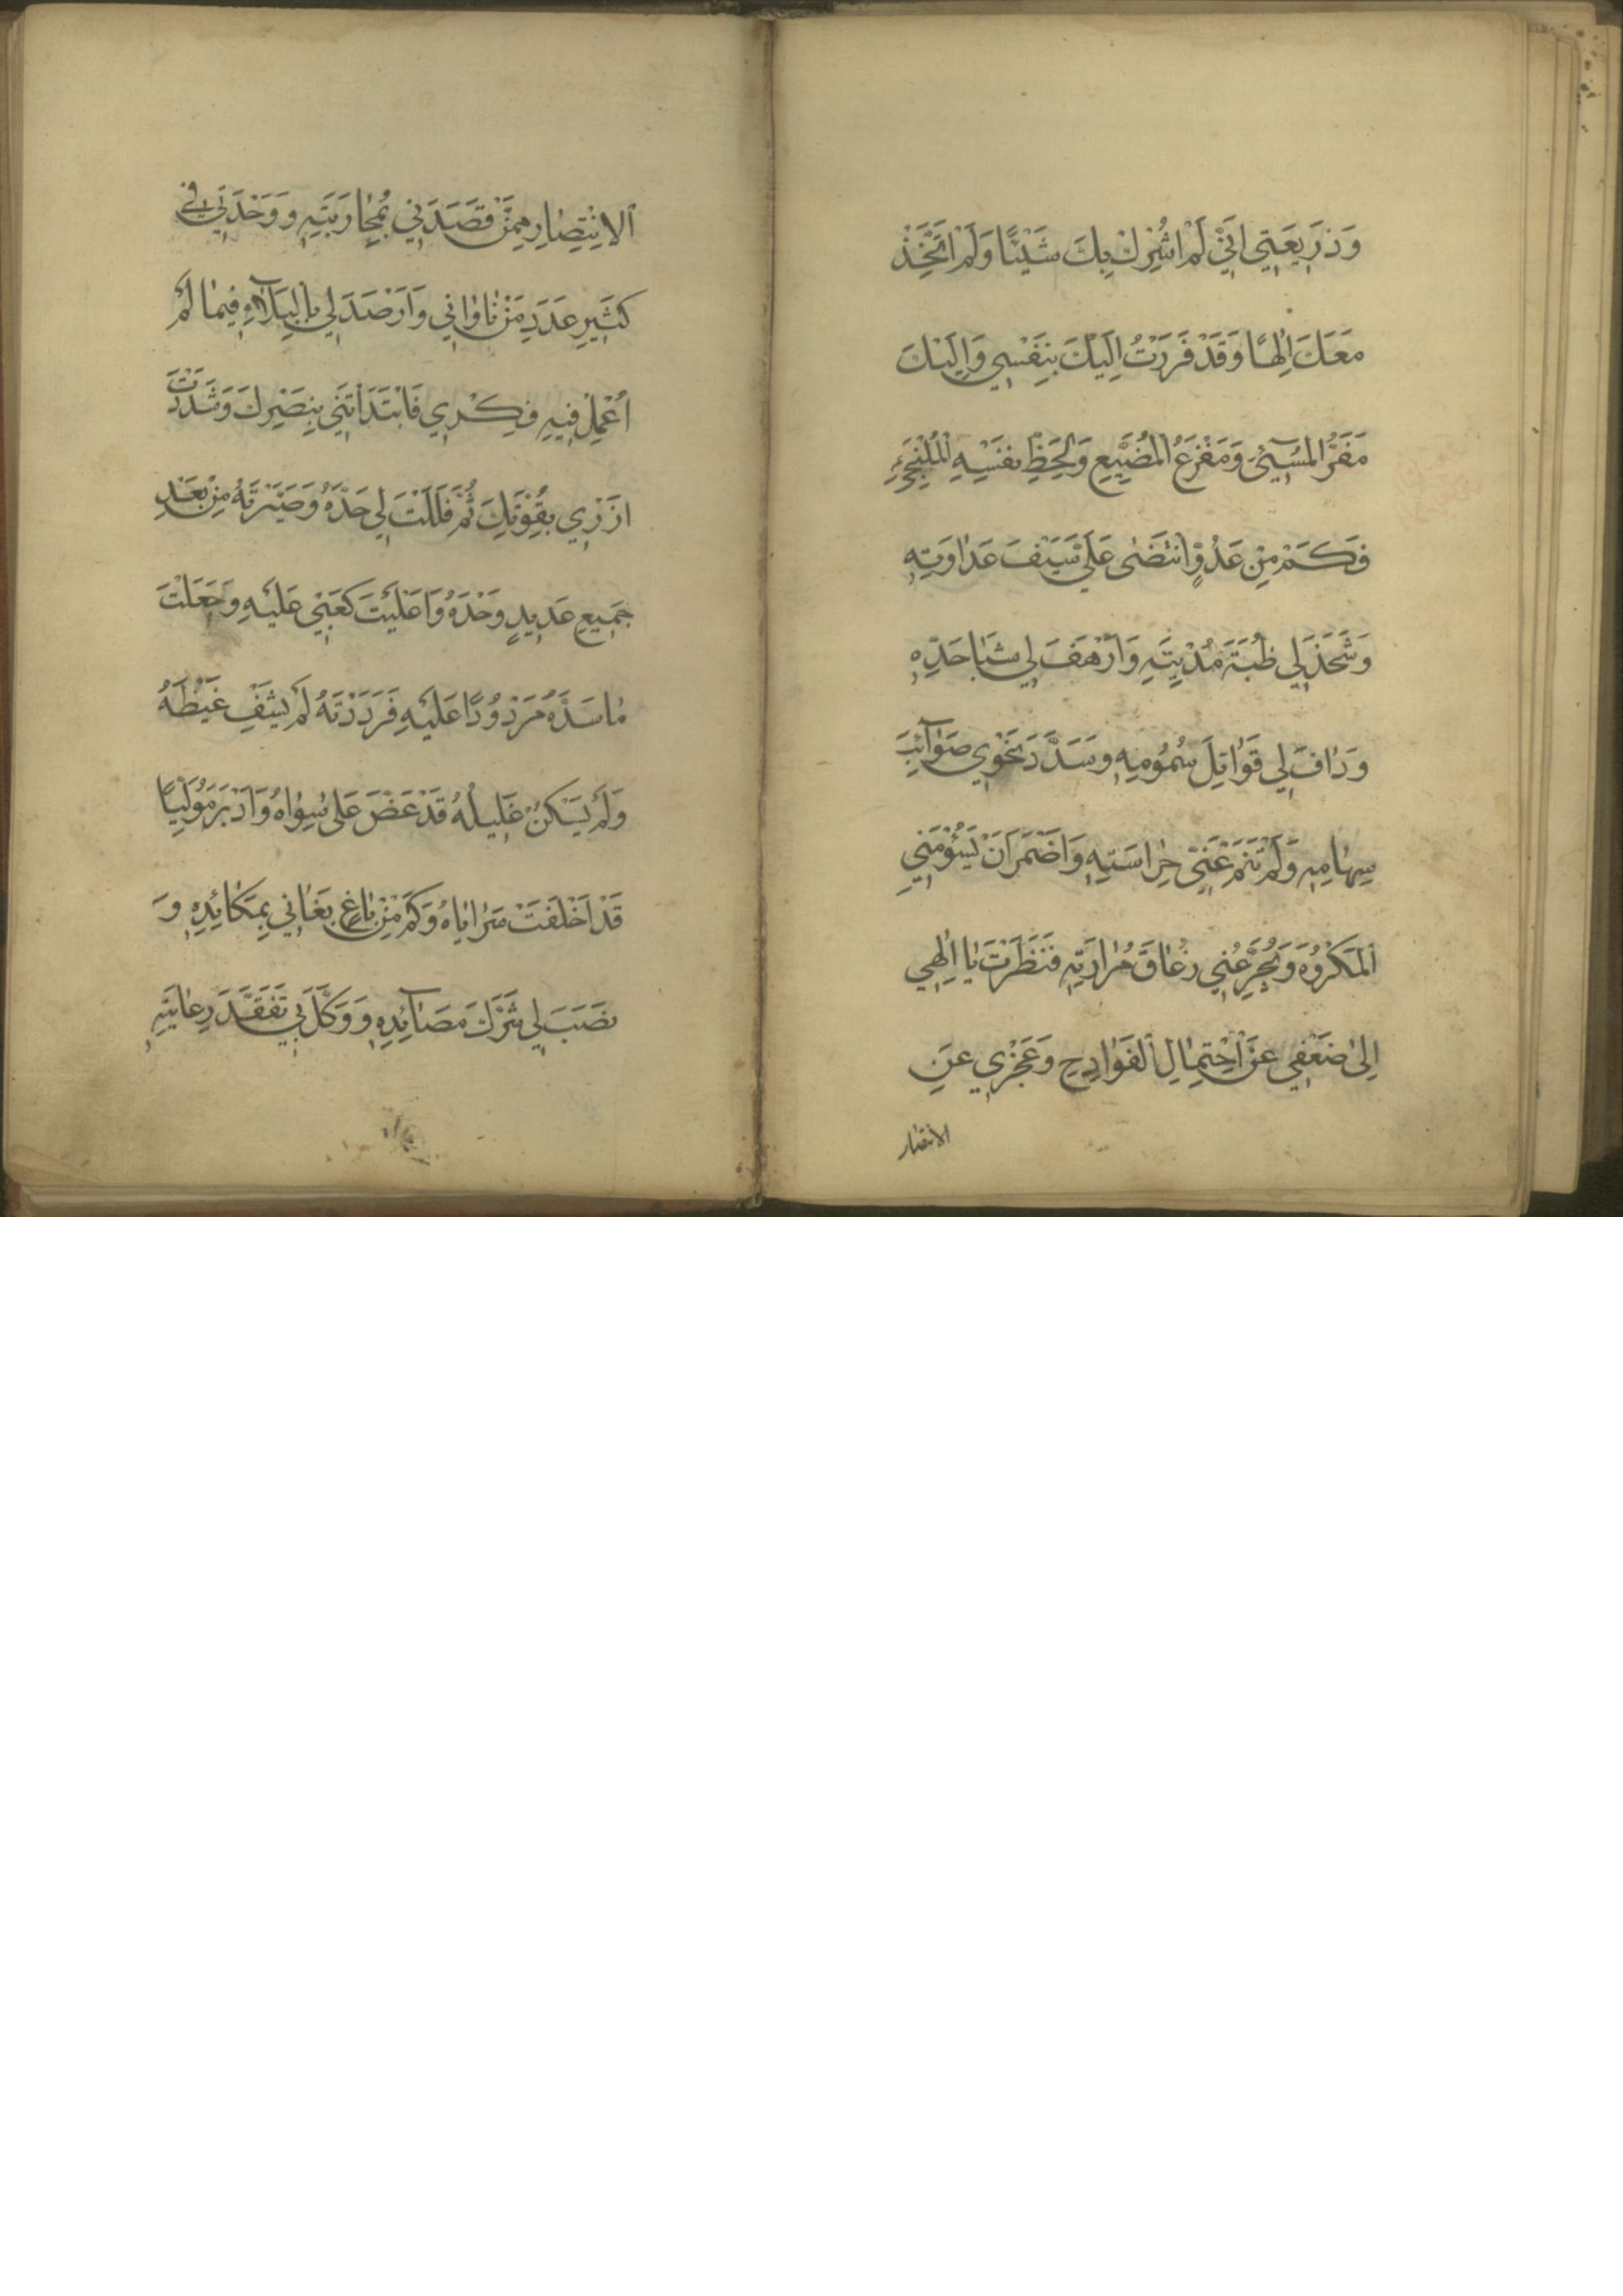 وَذَرِيعَتِي اَنِّي لَمْ اُشْرِكْ بِكَ شَيْئًا وَلَمْ اَتَّخِذْ
مَعَكَ اِلٰهًا وَقَدْ فَرَرْتُ اِلَيْكَ بِنَفْسِي وَاِلَيْكَ
مَفَرُّ الْمُسِيٓئِ وَمَفْزَعُ الْمُضَيِّعِ لِحَظِّ نَفْسِهِ الْمُلْتَجِئِ
فَكَمْ مِنْ عَدُوٍّ انْتَضٰى عَلَيَّ سَيْفَ عَدَاوَتِهِ
وَشَحَذَ لِي ظُبَةَ مُدْيَتِهِ وَاَرْهَفَ لِي شَبَا حَدِّهِ
وَدَافَ لِي قَوَاتِلَ سُمُومِهِ وَسَدَّدَ نَحْوِي صَوَآئِبَ
سِهَامِهِ وَلَمْ تَنَمْ عَنِّي حِرَاسَتِهِ وَاَضْمَرَ اَنْ يَسُومَنِي
الْمَكْرُوهَ وَيُجَرِّعُنِي زُعَاقَ مُرَارَتِهِ فَنَظَرْتَ يَا اِلٰهِي
اِلىٰ ضَعْفِي عَنِ احْتِمَالِ الْفَوَادِحِ وَعَجْزِي عَنِ
الانتصار
الْاِنْتِصَارِ مِمَّنْ قَصَدَنِي بِمُحَارَبَتِهِ وَوَحْدَتِي فِي
كَثِيرِ عَدَدِ مَنْ نَاوَانِي وَاَرْصَدَ لِي بِالْبَلَآءِ فِيمَا لَمْ
اُعْمِلْ فِيهِ فِكْرِي فَابْتَدَاْتَنِي بِنَصْرِكَ وَشَدَدْتَ
اَزْرِي بِقُوَّتِكَ ثُمَّ فَلَلْتَ لِي حَدَّهُ وَصَيَّرْتَهُ مِنْ بَعْدِ
جَمِيعِ عَدِيدٍ وَحْدَهُ وَاَعْلَيْتَ كَعْبِي عَلَيْهِ وَجَعَلْتَ
مَا سَدَّهُ مَرْدُودًا عَلَيْهِ فَرَدَدْتَهُ لَمْ يَشْفِ غَيْظَهُ
وَلَمْ يَسْكُنْ غَلِيلُهُ قَدْ عَضَّ عَلىٰ سِوَاهُ وَاَدْبَرَ مُوَلِّيًا
قَدْ اَخْلَفَتْ سَرَايَاهُ وَكَمْ مِنْ بَاغٍ بَغَانِي بِمَكَائِدِهِ وَ
نَصَبَ لِي شَرَكَ مَصَآئِدِهِ وَوَكَّلَ بِي تَفَقُّدَ رِعَايَتِهِ